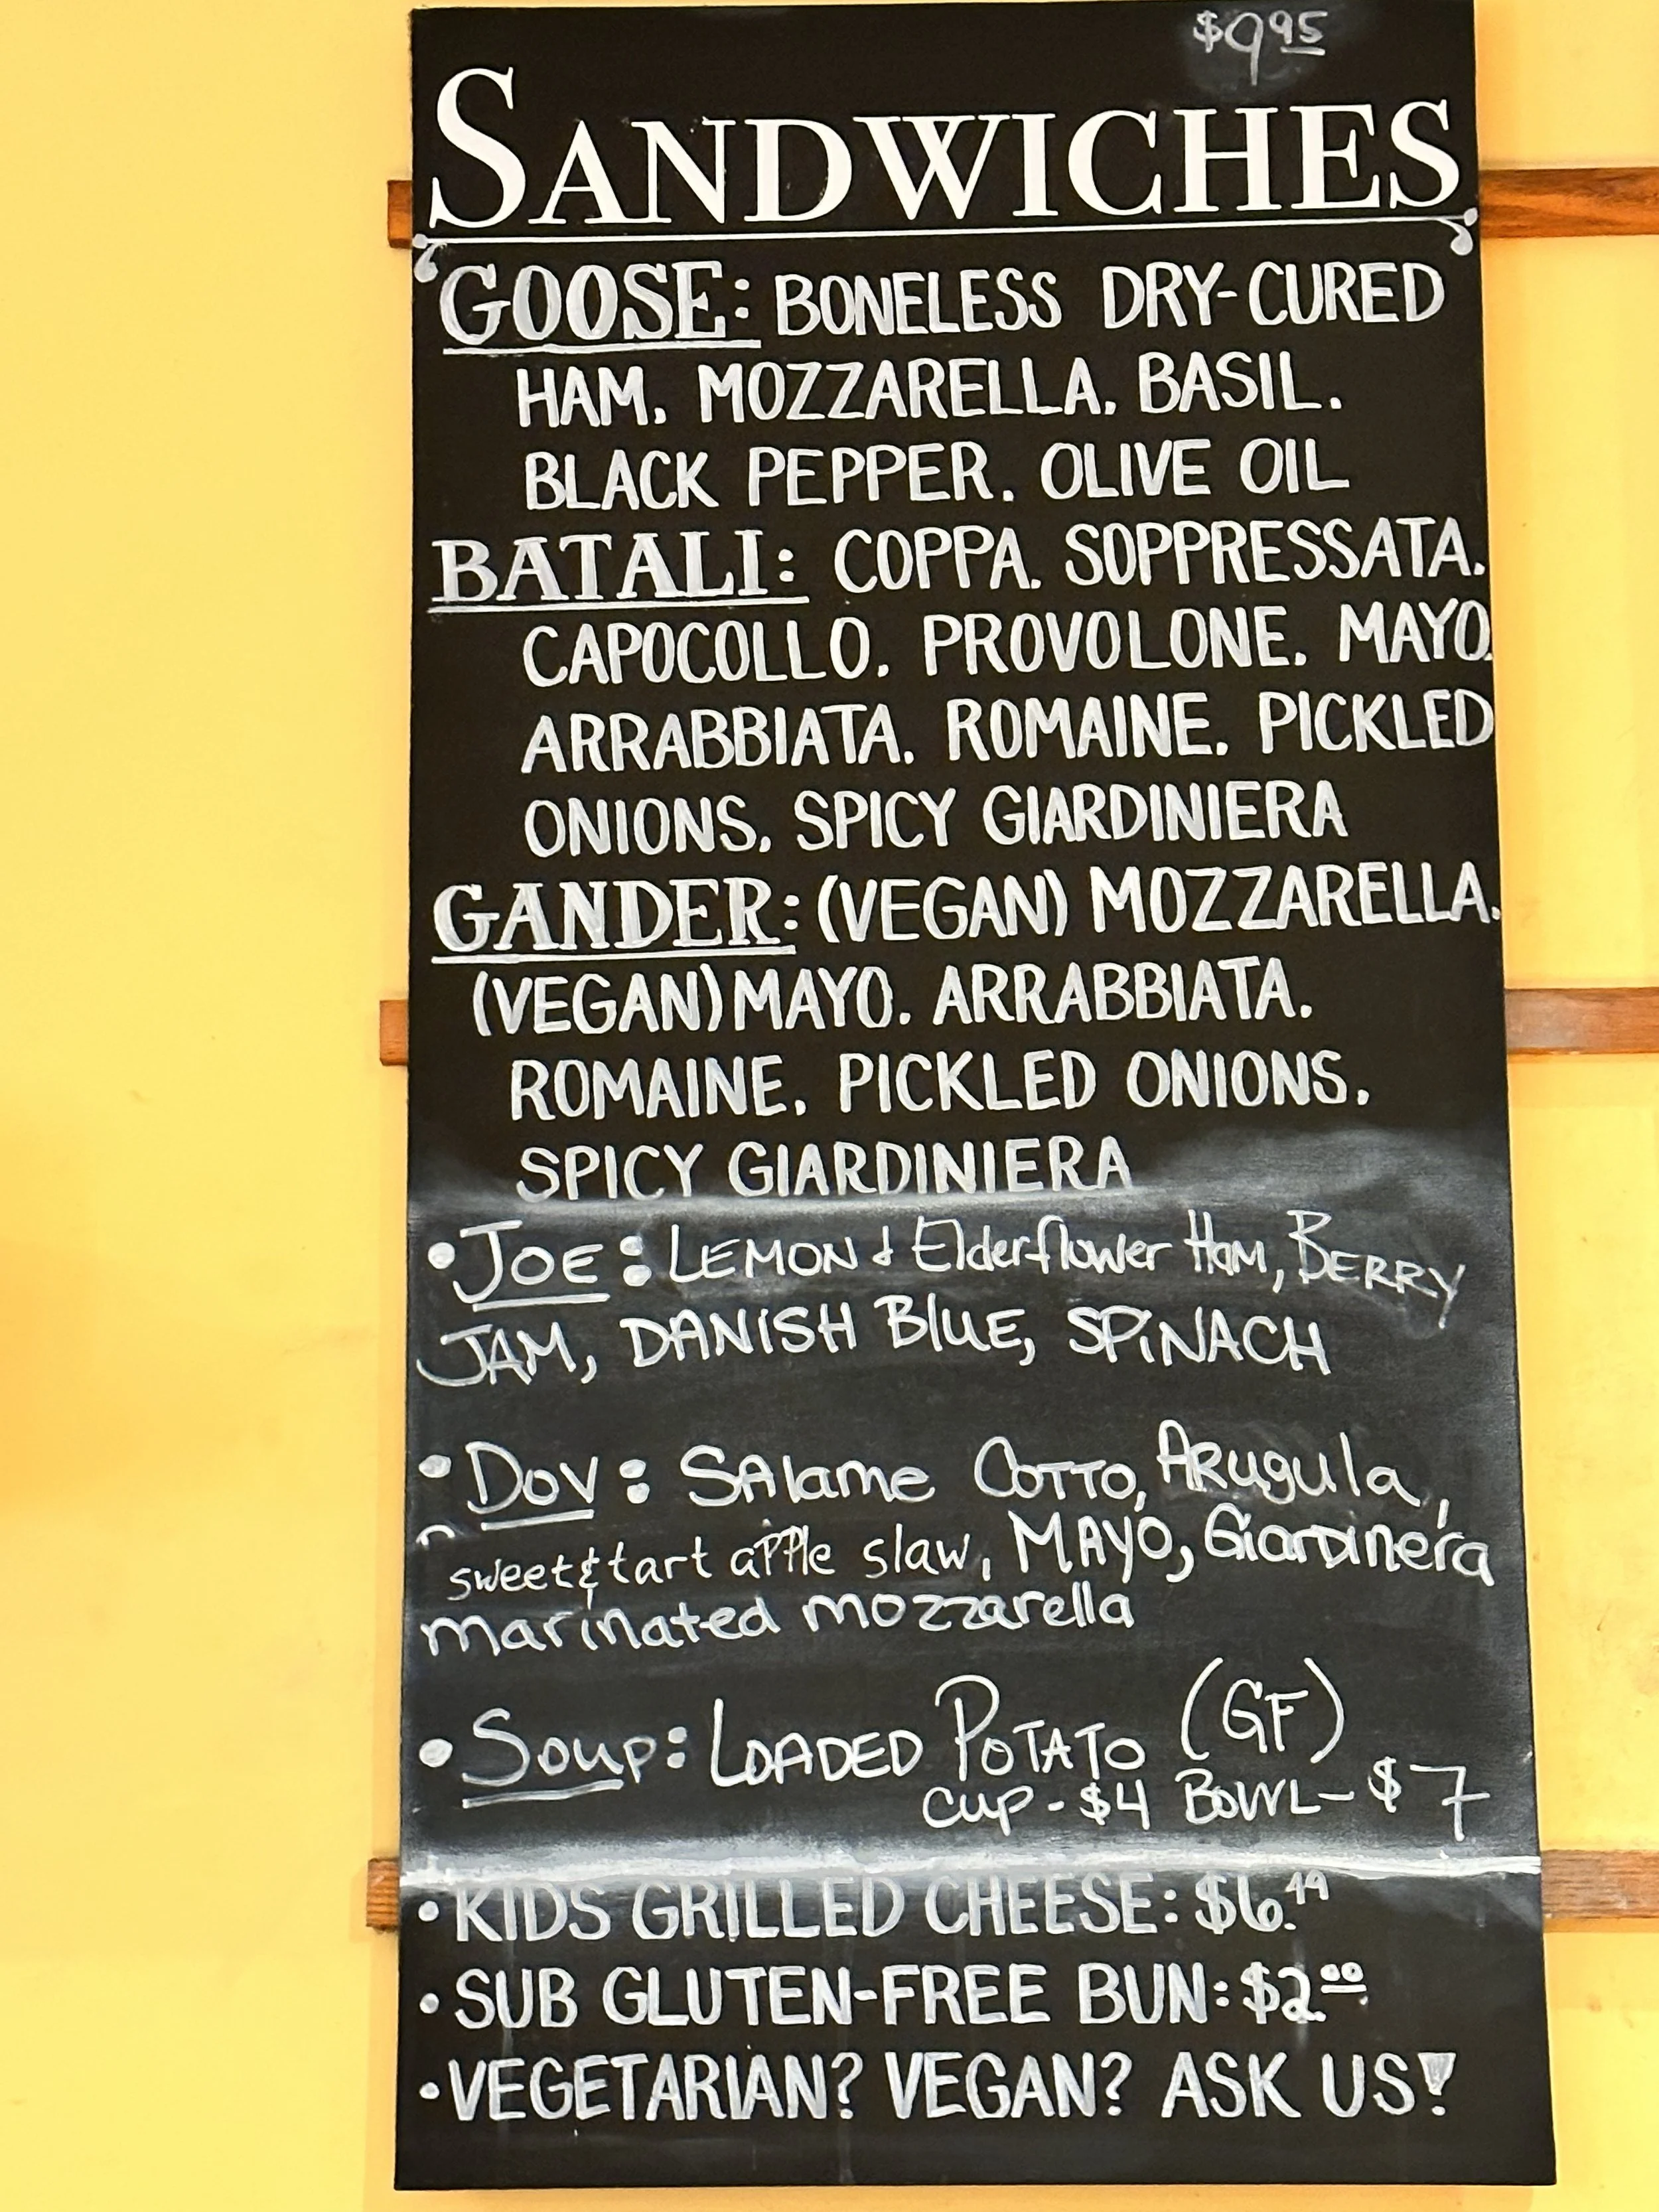 $9.95
SANDWICHES
GOOSE: BONELESS DRY-CURED
HAM, MOZZARELLA, BASIL,
BLACK PEPPER, OLIVE OIL
BATALI: COPPA, SOPPRESSATA,
CAPOCOLLO, PROVOLONE, MAYO,
ARRABBIATA, ROMAINE, PICKLED
ONIONS, SPICY GIARDINIERA
GANDER: (VEGAN) MOZZARELLA,
(VEGAN) MAYO, ARRABBIATA,
ROMAINE, PICKLED ONIONS,
SPICY GIARDINIERA
• JOE: LEMON & Elderflower HAM, BERRY
JAM, DANISH BLUE, SPiNACH
• DOV: SAlame COTTO, ARugula,
sweet & tart apple slaw, MAYO, Giardinera
marinated mozzarella
• Soup: LOADED POTATO (GF)
cup - $4 BOWL - $7
• KIDS GRILLED CHEESE: $6.49
• SUB GLUTEN-FREE BUN: $2.00
• VEGETARIAN? VEGAN? ASK US!